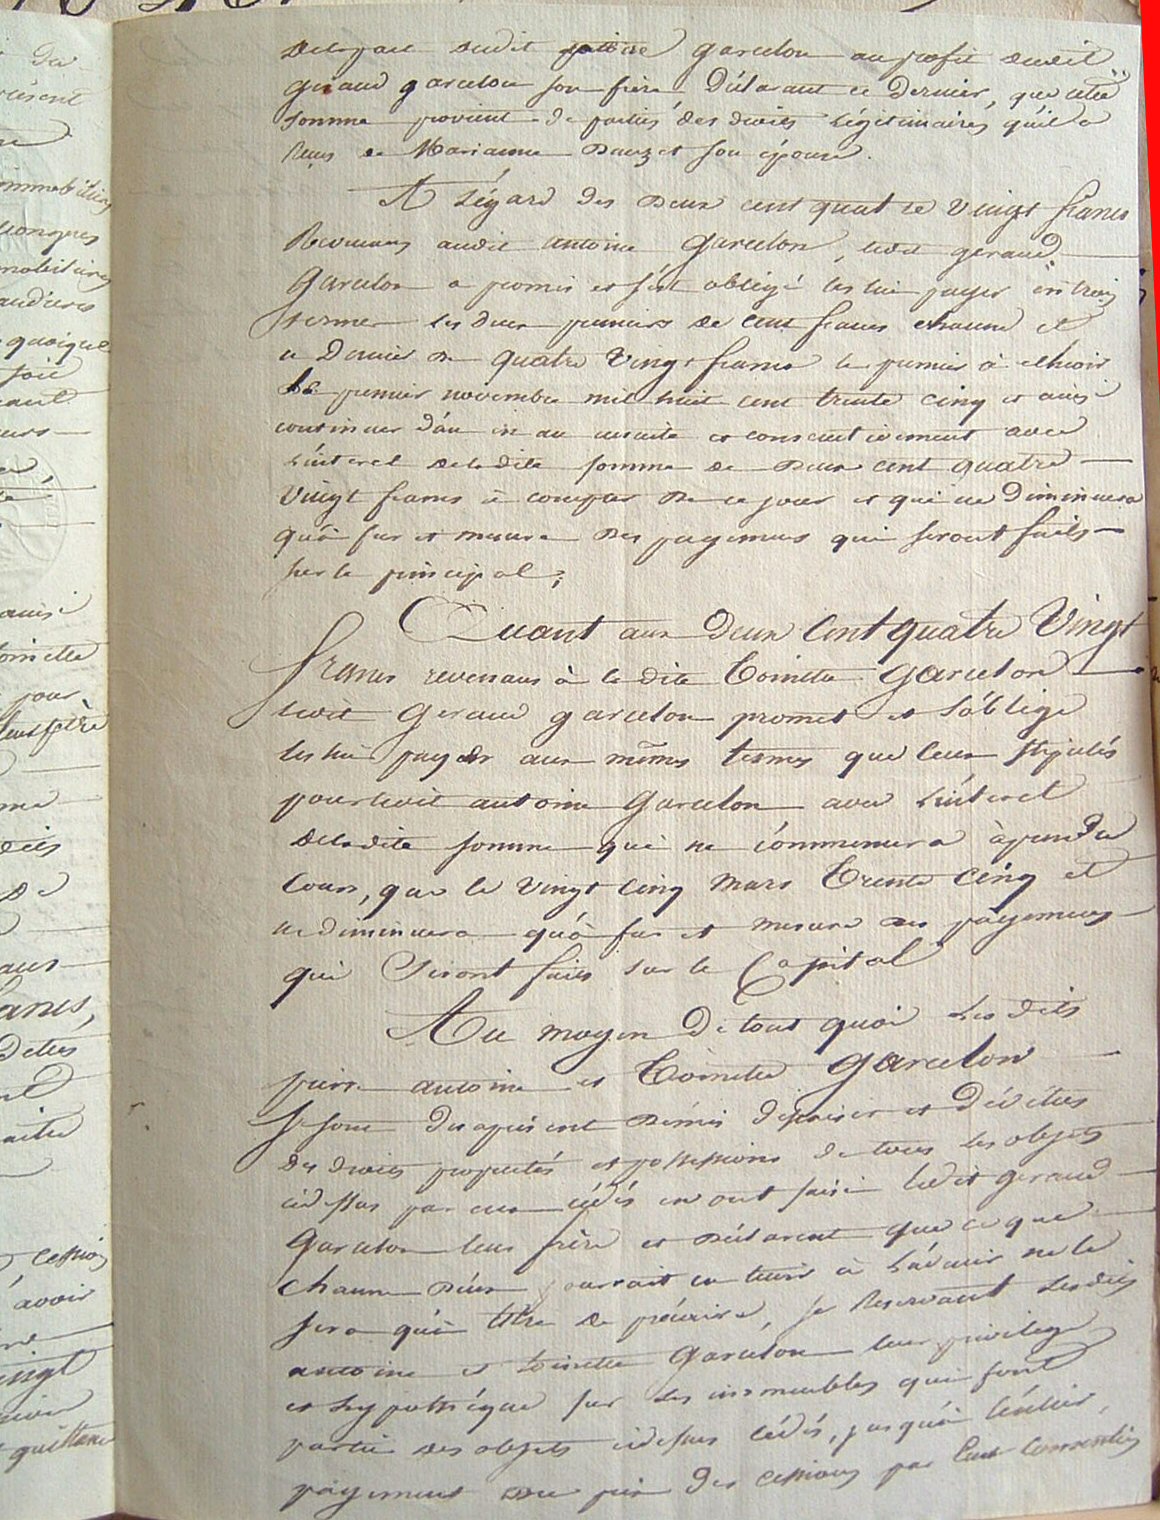 dela part dudit pierre garcelon au profit dudit
geraud garcelon son frère Déclarant ce Dernier, que cette
somme provient de partie des droits légitimaires qu'il a
Reçus de Marianne Dauzet son épouse.
A L'égard des Deux cent quatre vingt francs
Revenans audit antoine Garcelon, ledit geraud
Garcelon a promis et s'est obligé les lui payer en trois
termes les deux premiers de Cent francs chacun et
le Dernier de quatre Vingt francs le premier à échoir
le premier novembre mil huit cent trente cinq et ainsi
continuer d'an en an ensuite et consecutivement avec
L'intéret dela dite somme de Deux cent quatre
Vingt francs à compter De ce jour et qui ne Diminuera
qu'à fur et mesure Des payemens qui seront faits
sur le principal;
Quant aux Deux Cent quatre Vingt
francs revenans à la dite Toinette Garcelon
ledit Geraud garcelon promet et s'oblige
les lui payer aux mêmes termes que ceux stipulés
pour ledit antoine Garcelon avec L'intéret
dela dite somme qui ne commencera à prendre
Cours, que le Vingt Cinq Mars Trente Cinq et
ne diminuera qu'à fur et mesure des payemens
qui Seront faits sur le Capital
Au moyen De tout quoi les dits
pierre antoine et Toinette Garcelon
se sont des à présent Démis dessaisis et dévêtus
Des droits propriétés et possessions de tous les objets
ci dessus par eux cédés en ont saisi ledit geraud
Garcelon leur frère et Déclarent que ce que
chacun D'eux pourrait en tenir à L'avenir ne le
sera qu'à titre de précaire, se Reservant lesdits
antoine et toinette Garcelon leur privilege
et hypothéque sur les immeubles qui font
partie des objets ci dessus cédés, jusqu'à L'entier,
payement du prix Des cessions par Eux Consenties